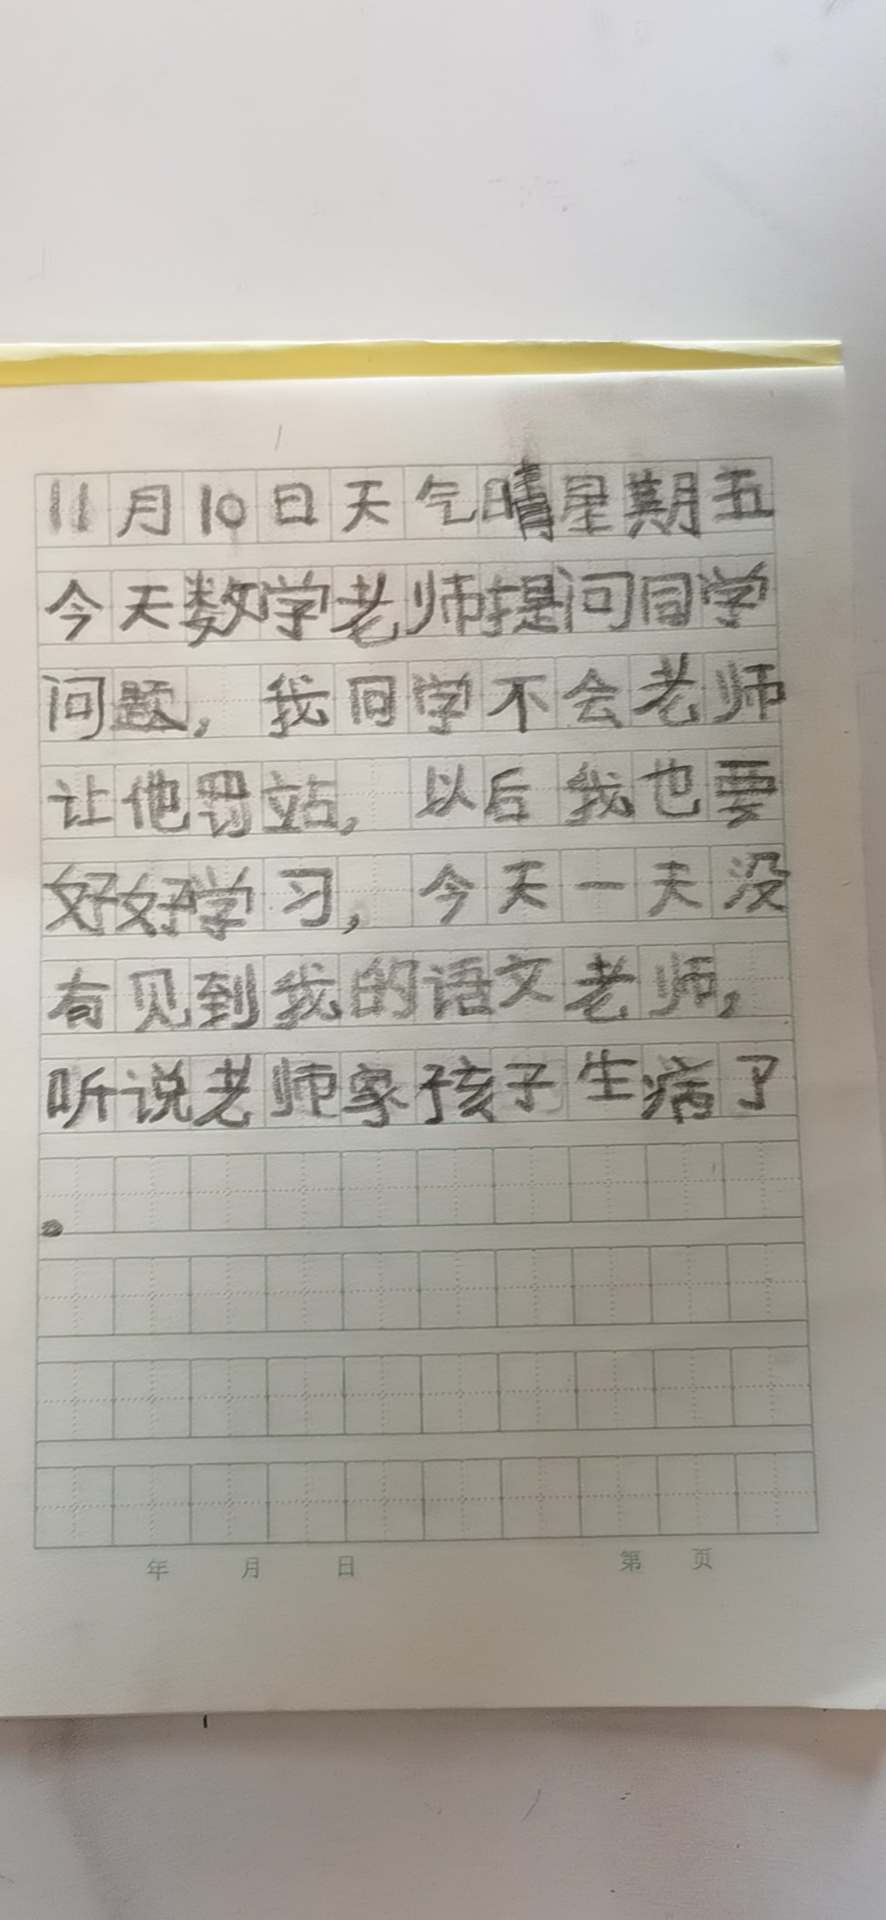 11月10日天气晴星期五
今天数学老师提问同学
问题，我同学不会老师
让他罚站，以后我也要
好好学习，今天一天没
有见到我的语文老师，
听说老师家孩子生病了
。
年 月 日 第 页